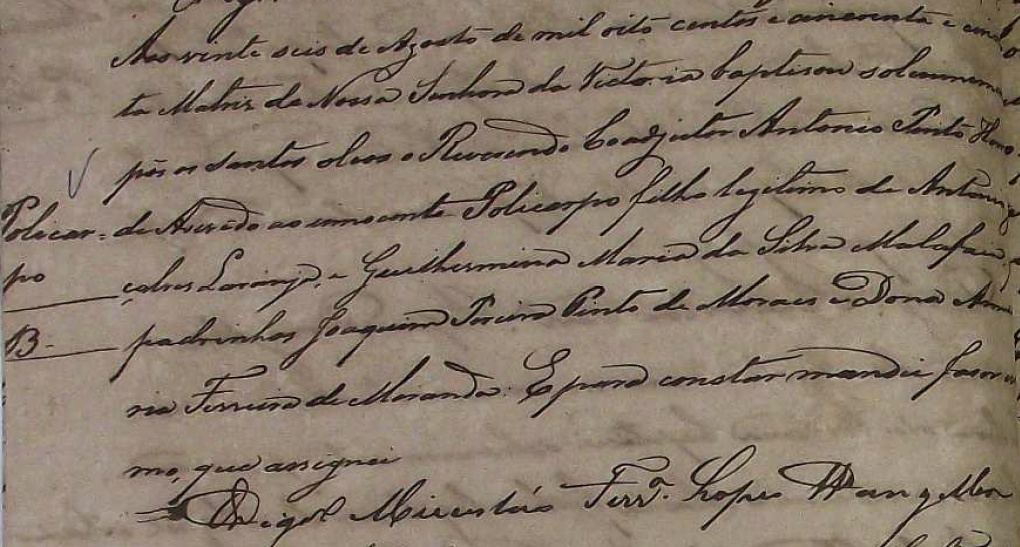 Aos vinte seis de Agosto de mil oito centos e cincoenta e cinc
ta Matriz da Nossa Senhora da Victoria baptisou solemnemen
pôs os santos oleos o Reverendo Coadjutor Antonio Pinto Hono
Policar= de Asevedo ao innocente Policarpo filho legitimo de Antonio
po çalves Laranja, e Guilhermina Maria da Silva Malafaia,
B. padrinhos Joaquim Pereira Pinto de Moraes e Dona Anna
ria Ferreira de Miranda. E para constar mandei faser
mo, que assignei
Vigr.o Ferr.a Lopes Wan